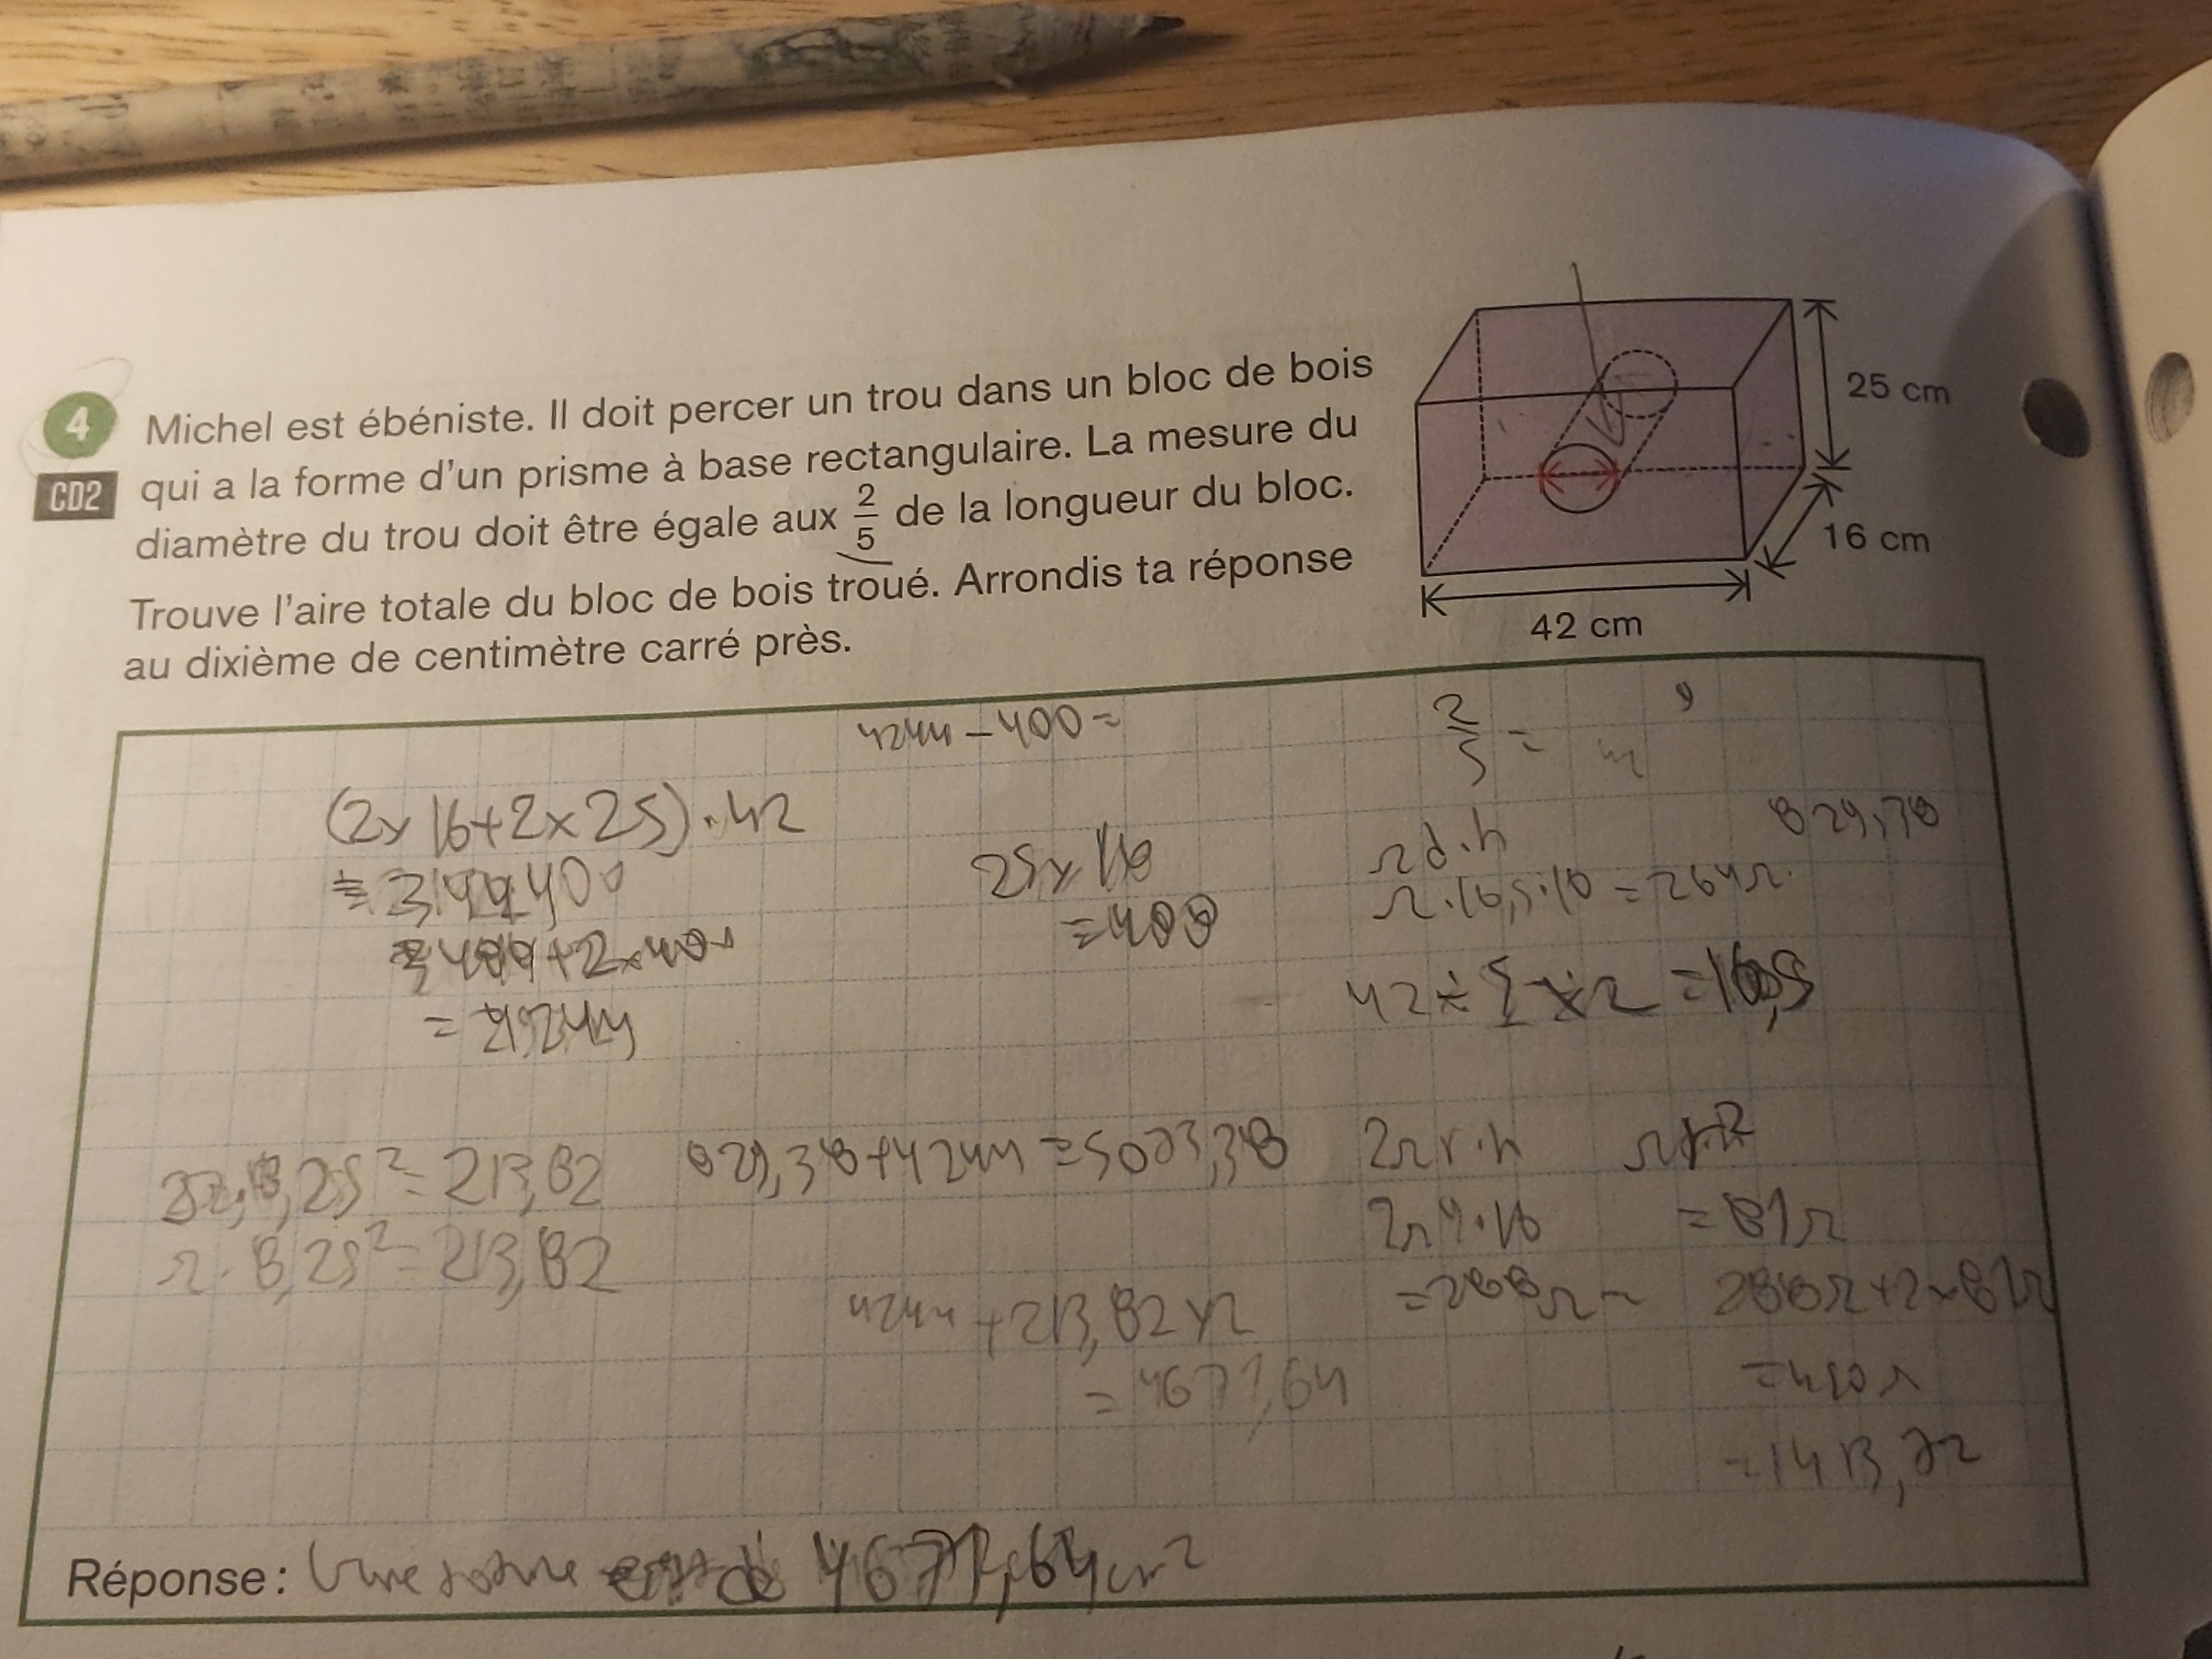 4 Michel est ébéniste. Il doit percer un trou dans un bloc de bois
CD2 qui a la forme d'un prisme à base rectangulaire. La mesure du
diamètre du trou doit être égale aux 2/5 de la longueur du bloc.
Trouve l'aire totale du bloc de bois troué. Arrondis ta réponse
au dixième de centimètre carré près.
25 cm
16 cm
42 cm
4244 - 400 =
2/5 =
(2x16+2x25)·42
25x16
= 400
πd·h
π·16,5·16 = 264π
= 4244
π·8,25² = 213,82
829,38+4244 = 5073,38
2πr·h
2π9·16
= 288π
= 81π
288π+2x81π
= 450π
4244 + 213,82x2
= 4671,64
= 1413,72
Réponse : 4671,64 cm²